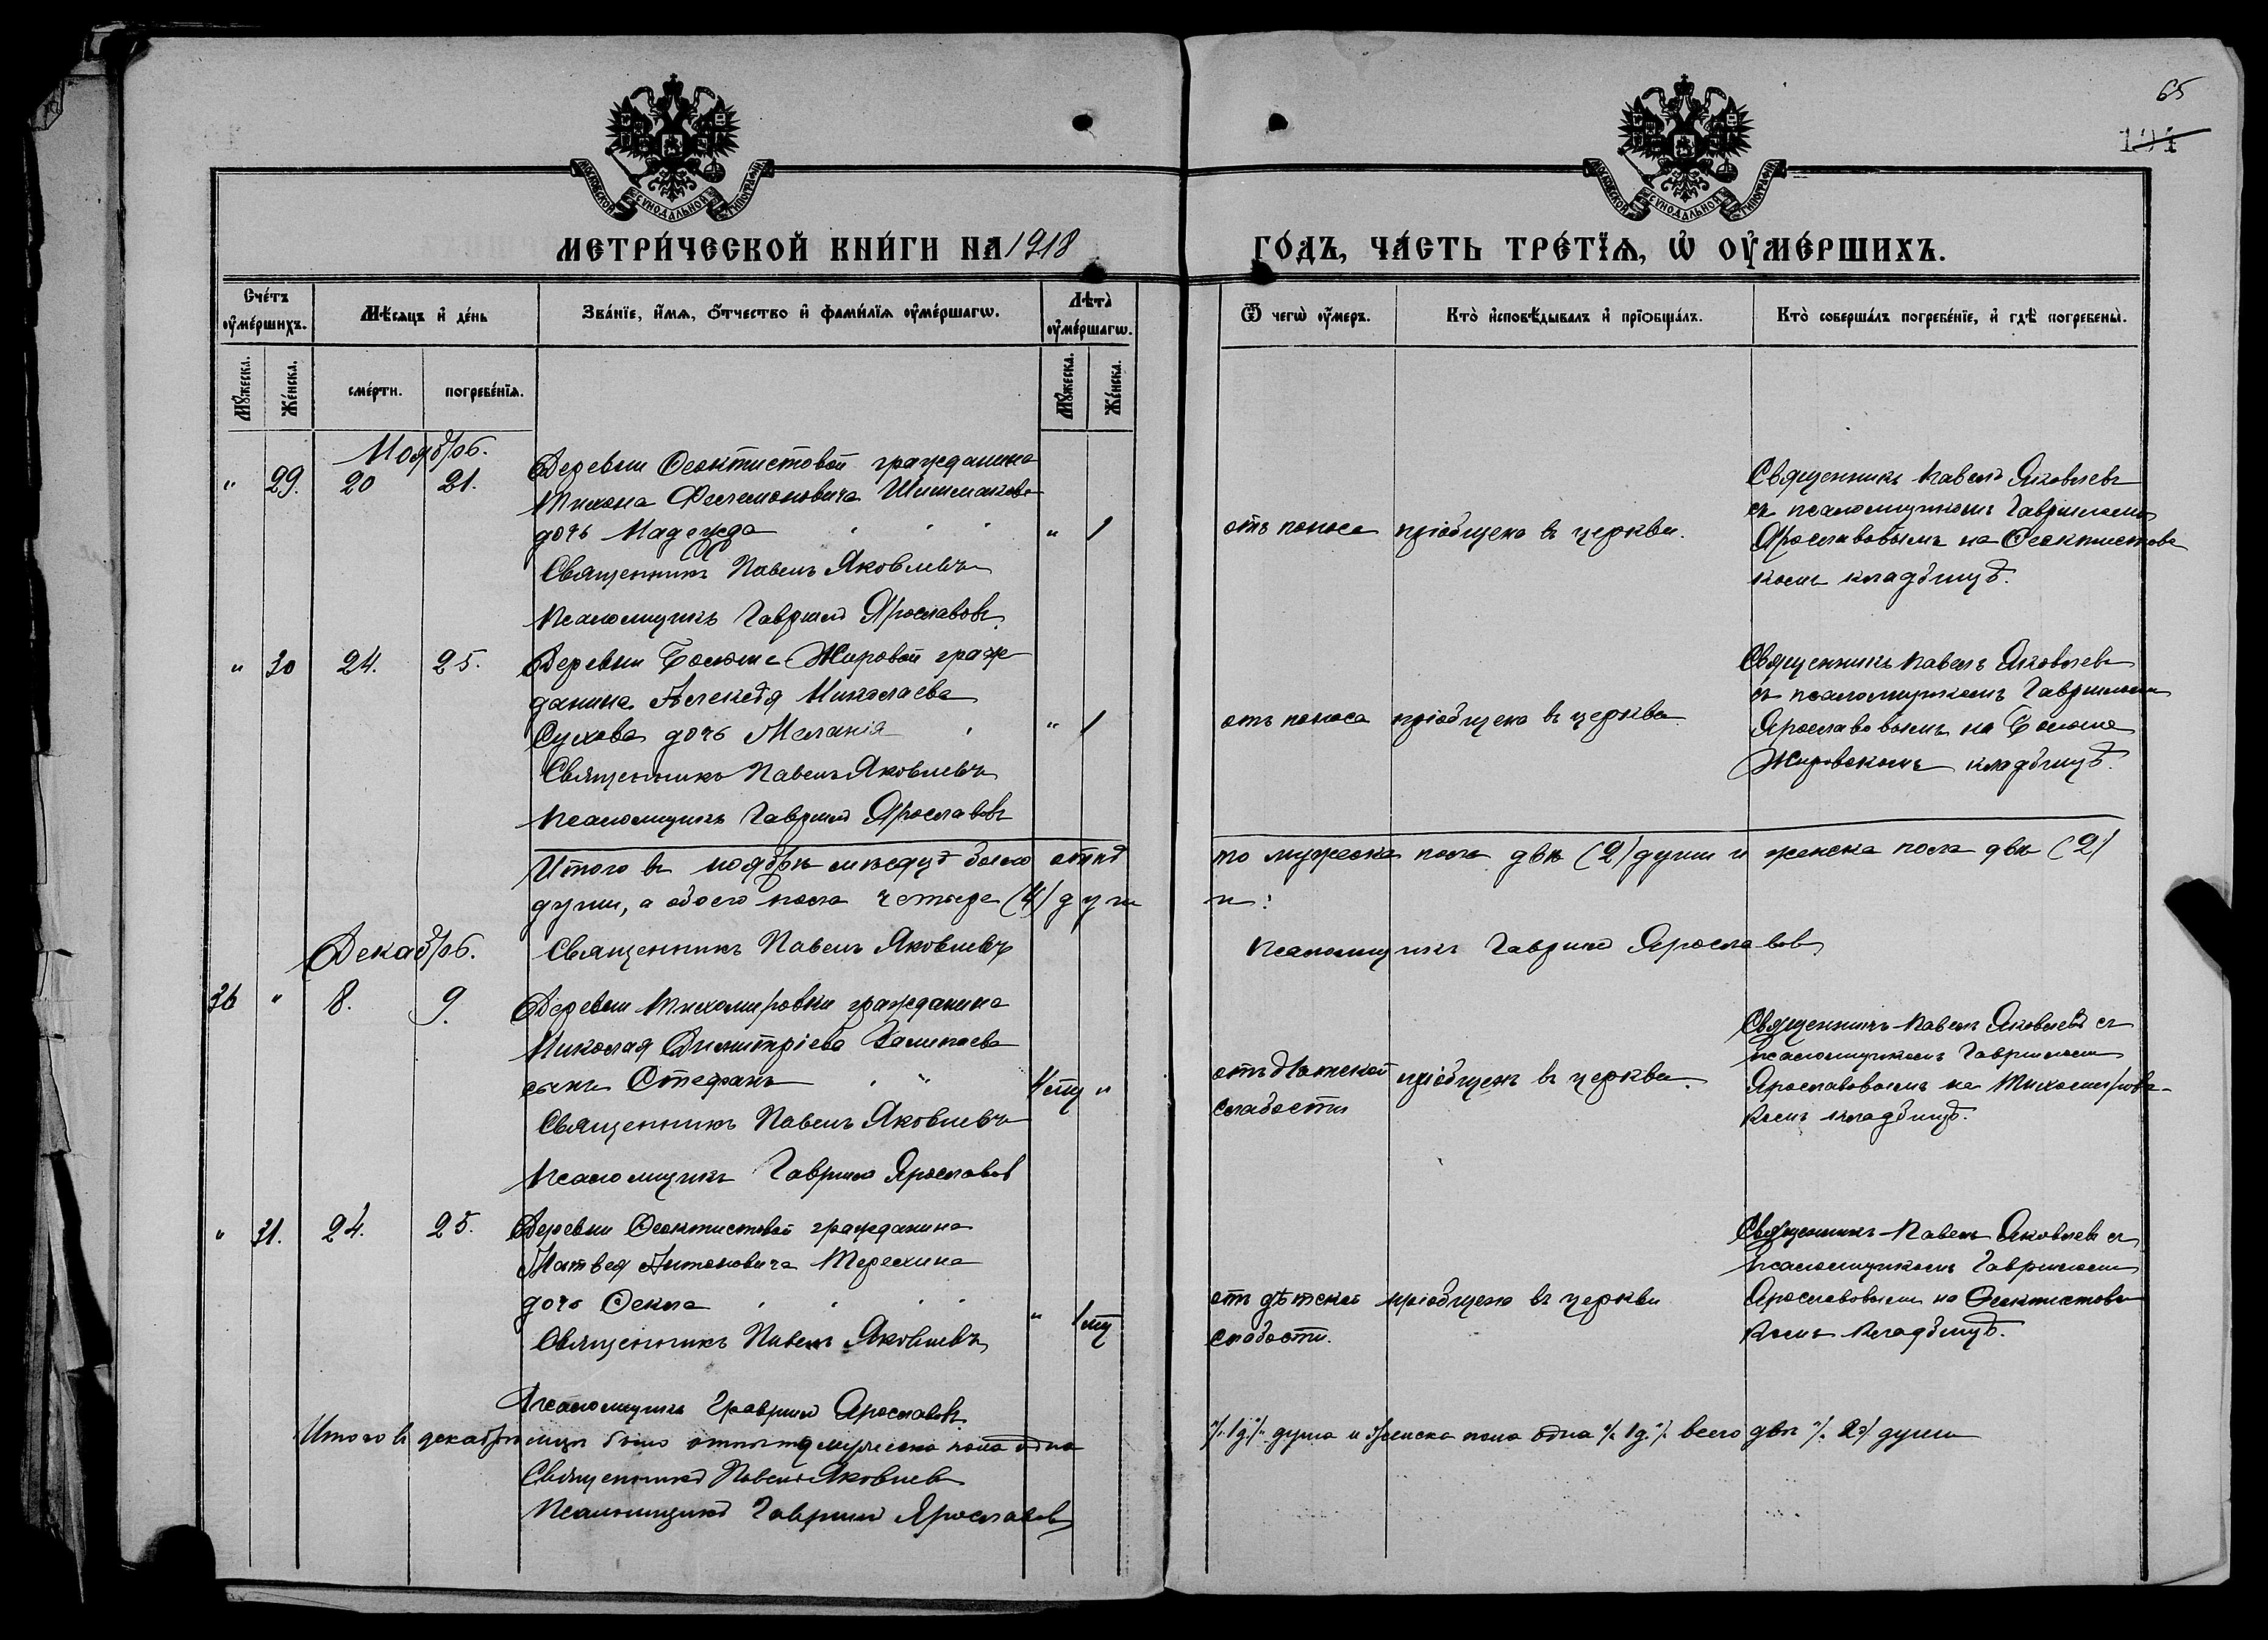 65
МОСКОВСКОЙ СУНОДАЛЬНОЙ ТИПОГРАФІИ
МОСКОВСКОЙ СУНОДАЛЬНОЙ ТИПОГРАФІИ
МЕТРИ́ЧЕСКОЙ КНИ́ГИ НА 1918
ГО́ДЪ, ЧА́СТЬ ТРЕ́ТЇѦ, Ѡ҆ ОУ҆МЕ́РШИХЪ.
Сче́тъ оу҆ме́ршихъ.
Мѣ́сяцъ и҆ де́нь
Зва́нїе, и҆́мѧ, ѻ҆́тчество и҆ фами́лїѧ оу҆ме́ршагѡ.
Лѣта̀ оу҆ме́ршагѡ.
Ѿ чегѡ̀ оу҆́меръ.
Кто̀ и҆сповѣ́дывалъ и҆ прїѻбща́лъ.
Кто̀ соверша́лъ погребе́нїе, и҆ гдѣ̀ погребены̀.
Мꙋ́жеска. Же́нска.
сме́рти. погребе́нїѧ.
Мꙋ́жеска. Же́нска.
Ноябрь.
" 29. 20 21. Деревни Ѳеоктистовой гражданина
Тихона Филимоновича Шишмакова
дочь Надежда " 1
Священникъ Павелъ Яковлевъ
Псаломщикъ Гавріилъ Ярославовъ.
отъ поноса
пріобщена въ церкви.
Священникъ Павелъ Яковлевъ
съ псаломщикомъ Гавріиломъ
Ярославовымъ на Ѳеоктистовс
комъ кладбищѣ.
" 30 24. 25. Деревни Болоше-Жировой граж
данина Алексѣя Николаева
Сухова дочь Меланія " 1
Священникъ Павелъ Яковлевъ
Псаломщикъ Гавріилъ Ярославовъ
отъ поноса
пріобщена въ церкви
Священникъ Павелъ Яковлевъ
съ псаломщикомъ Гавріиломъ
Ярославовымъ на Болоше
Жировскомъ кладбищѣ.
Итого въ ноябрѣ мѣсяцѣ было отпѣ
то мужеска пола двѣ (2) души и женска пола двѣ (2)
души, а обоего пола четыре (4) душ
и:
Декабрь. Священникъ Павелъ Яковлевъ
Псаломщикъ Гавріилъ Ярославовъ
36 " 8. 9. Деревни Тихомировки гражданина
Николая Димитріева
сынъ Стефанъ "
Священникъ Павелъ Яковлевъ
Псаломщикъ Гавріилъ Ярославовъ
отъ дѣтской
слабости
пріобщенъ въ церкви.
Священникъ Павелъ Яковлевъ съ
псаломщикомъ Гавріиломъ
Ярославовымъ на Тихомировс-
комъ кладбищѣ.
" 31. 24. 25. Деревни Ѳеоктистовой гражданина
Матвея Антоновича Терехина
дочь Ѳекла "
Священникъ Павелъ Яковлевъ
Псаломщикъ Гавріилъ Ярославовъ.
отъ дѣтской
слабости.
пріобщена въ церкви
Священникъ Павелъ Яковлевъ съ
псаломщикомъ Гавріиломъ
Ярославовымъ на Ѳеоктистовс
комъ кладбищѣ.
Итого въ декабрѣ мцѣ было отпѣто мужеска пола одна
/. 1 д. /. душа и женска пола одна /. 1 д. /. всего двѣ /. 2 /. души
Священникъ Павелъ Яковлевъ
Псаломщикъ Гавріилъ Ярославовъ